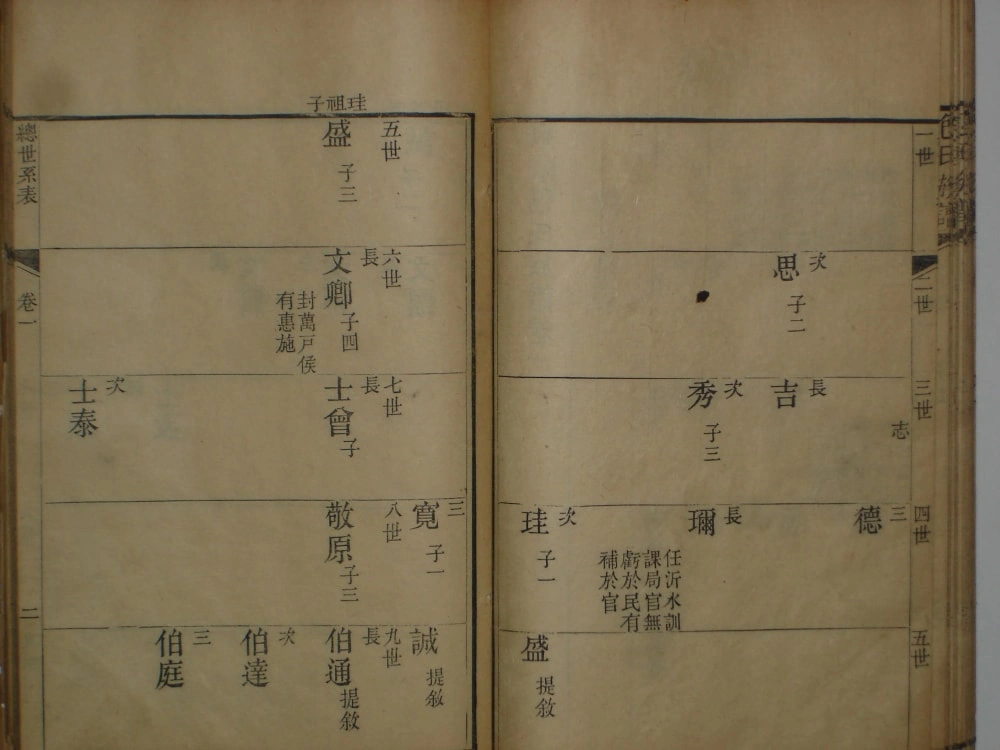 一世
二世
次
思 子二
三世
志
長
吉
次
秀 子三
四世
三
德
長
瓕
任沂水訓
課局官無
虧於民有
補於官
次
珪 子一
五世
盛 提敘
珪祖子
五世
盛 子三
六世
長
文卿 子四
封萬戶侯
有惠施
七世
長
士曾 子
次
士泰
三
寬 子一
八世
敬原 子三
誠 提敘
九世
長
伯通 提敘
次
伯達
三
伯庭
總世系表
卷一
二